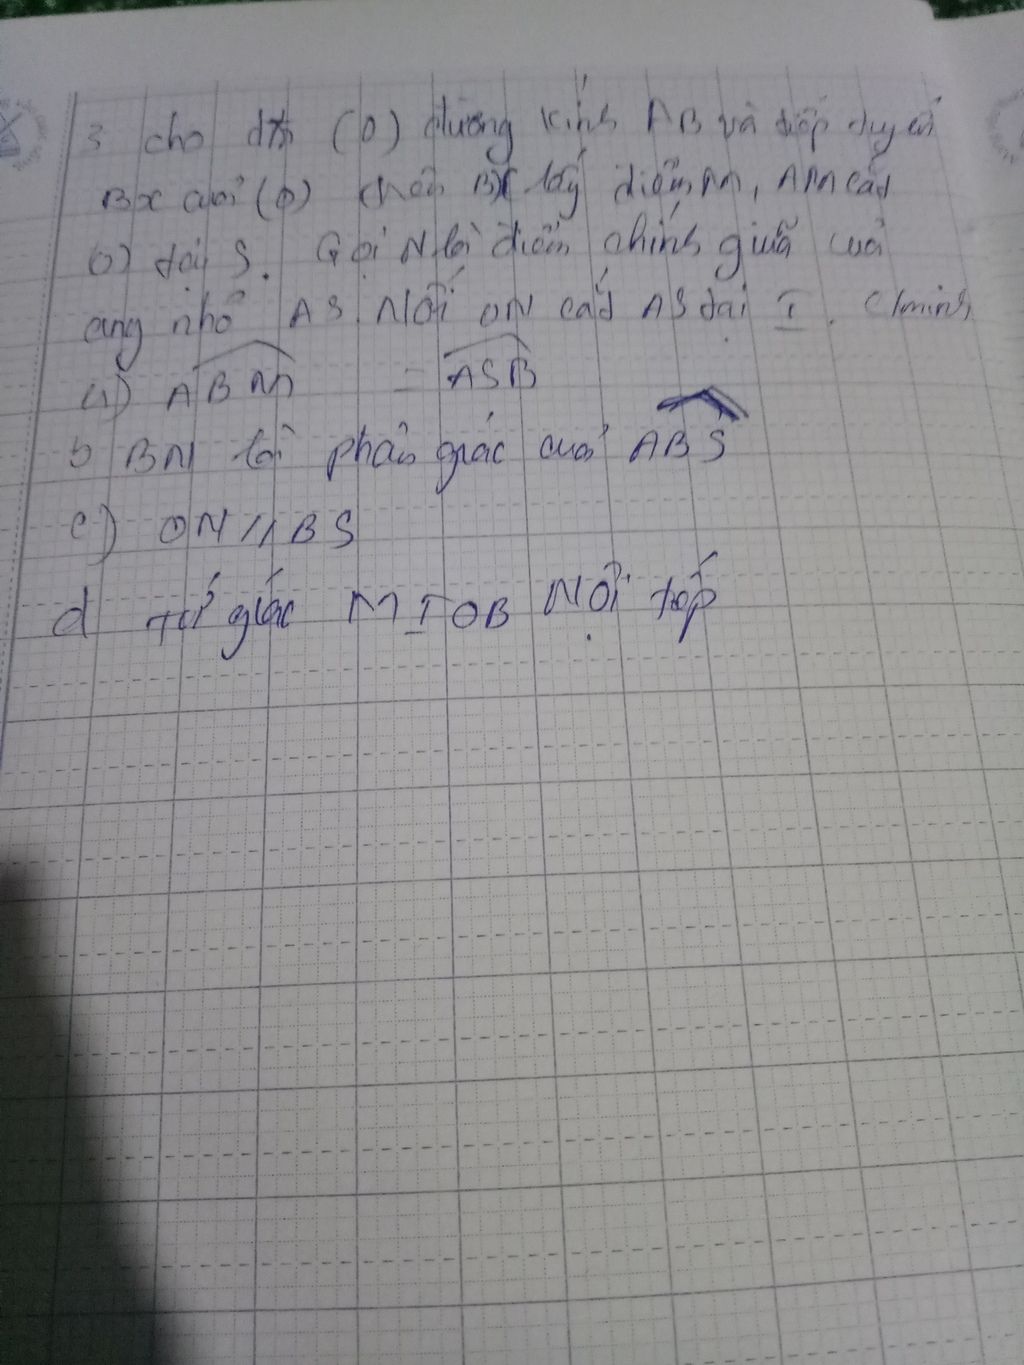 3 cho đtr (O) đường kính AB và tiếp tuyến
Bx của (O) trên Bx lấy điểm M, AM cắt
(O) tại S. Gọi N là điểm chính giữa của
cung nhỏ AS. Nối ON cắt AS tại I. C/minh
a) ABM = ASB
b BN là phân giác của ABS
c) ON // BS
d tứ giác MIOB Nội tiếp